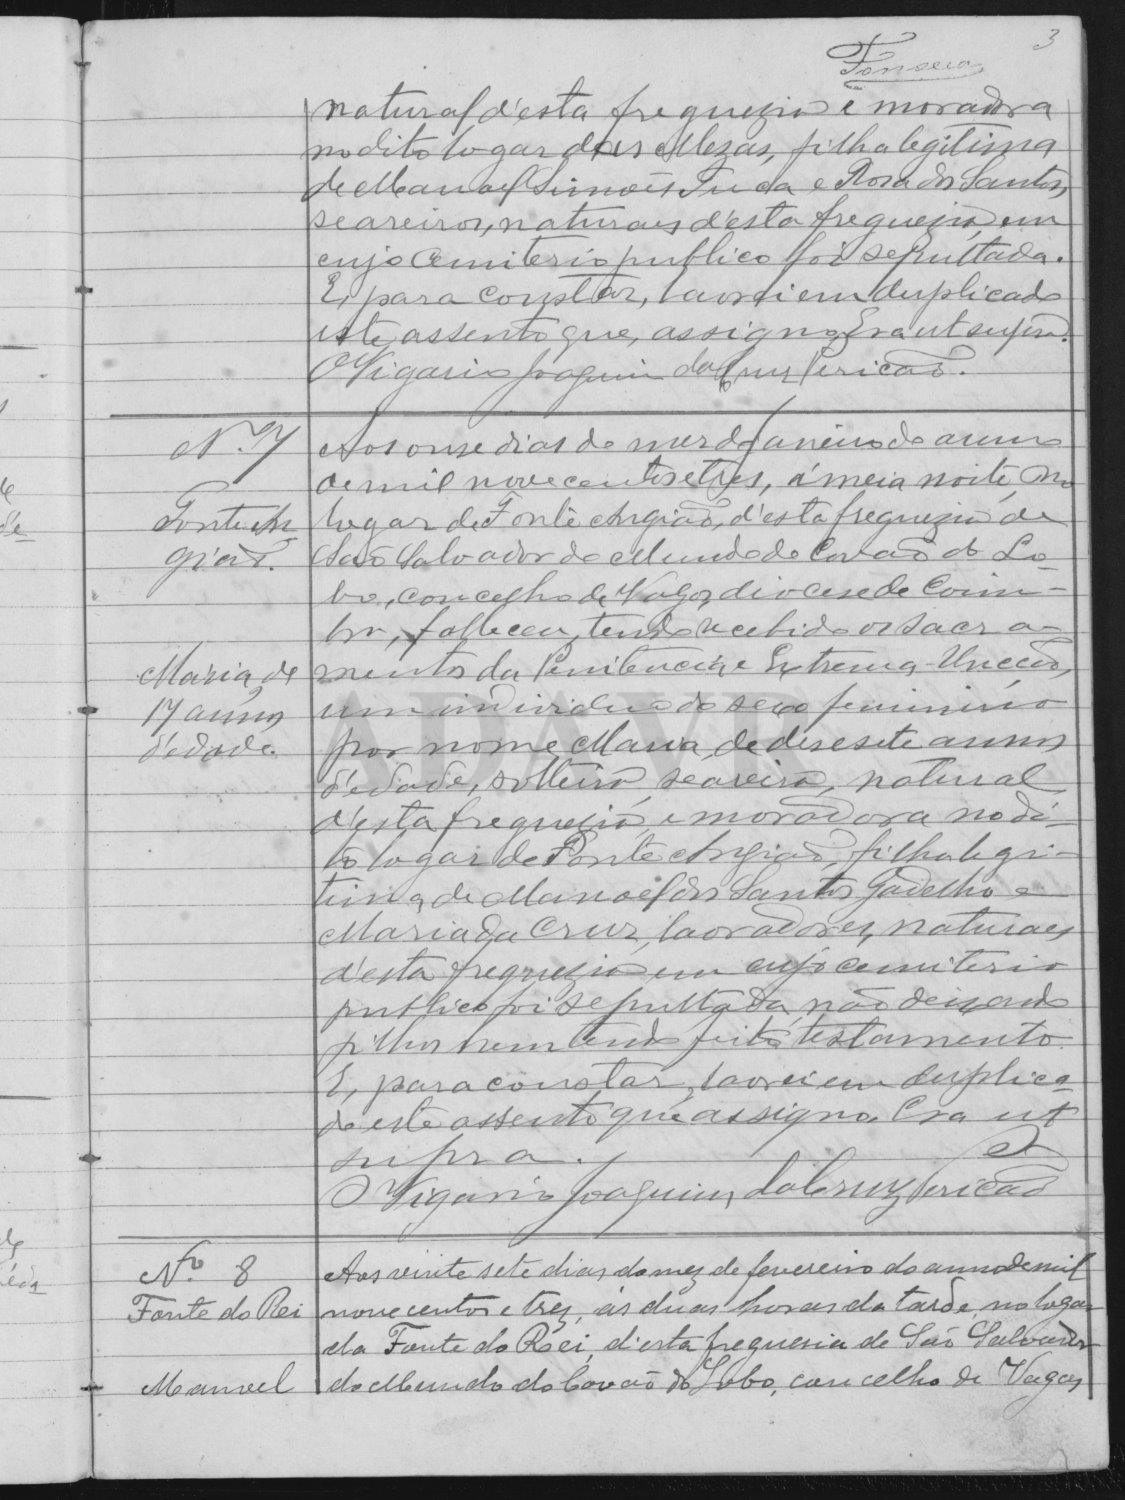 3
Fonseca
natural d'esta freguezia e moradora
no dito logar das Mezas, filha legitima
de Manoel Simões e Rosa dos Santos,
seareiros, naturaes d'esta freguezia, em
cujo cemiterio publico foi sepultada.
E, para constar, lavrei em duplicado
este assento que, assigno. Era ut supra.
O Vigario Joaquim da Cruz Pericão.
N.º 7
Fonte An
gião.
Maria, de
17 annos
d'edade.
Aos onse dias do mez de Janeiro do anno
de mil nove centos e tres, á meia noite, no
logar de Fonte Angião, d'esta freguezia de
São Salvador do Mundo do Covão do Lo-
bo, concelho de Vagos, diocese de Coim-
bra, falleceu, tendo recebido os sacra-
mentos da Penitencia, e Extrema-Uncção,
um individuo do sexo feminino
por nome Maria, de desesete annos
d'edade, solteira, seareira, natural
d'esta freguezia, e moradora no di-
to logar de Fonte Angião, filha legi-
tima, de Manoel dos Santos Gadelho e
Maria da Cruz, lavradores, naturaes
d'esta freguezia, em cujo cemiterio
publico foi sepultada, não deixando
filhos nem tendo feito testamento.
E, para constar, lavrei em duplica-
do este assento que assigno. Era ut
supra.
O Vigario Joaquim da Cruz Pericão
N.º 8
Fonte do Rei
Manuel
Aos vinte sete dias do mez de fevereiro do anno de mil
nove centos e trez, ás duas horas da tarde, no logar
da Fonte do Rei, d'esta freguesia de São Salvador
do Mundo do Covão do Lobo, concelho de Vagos,
ADAVR